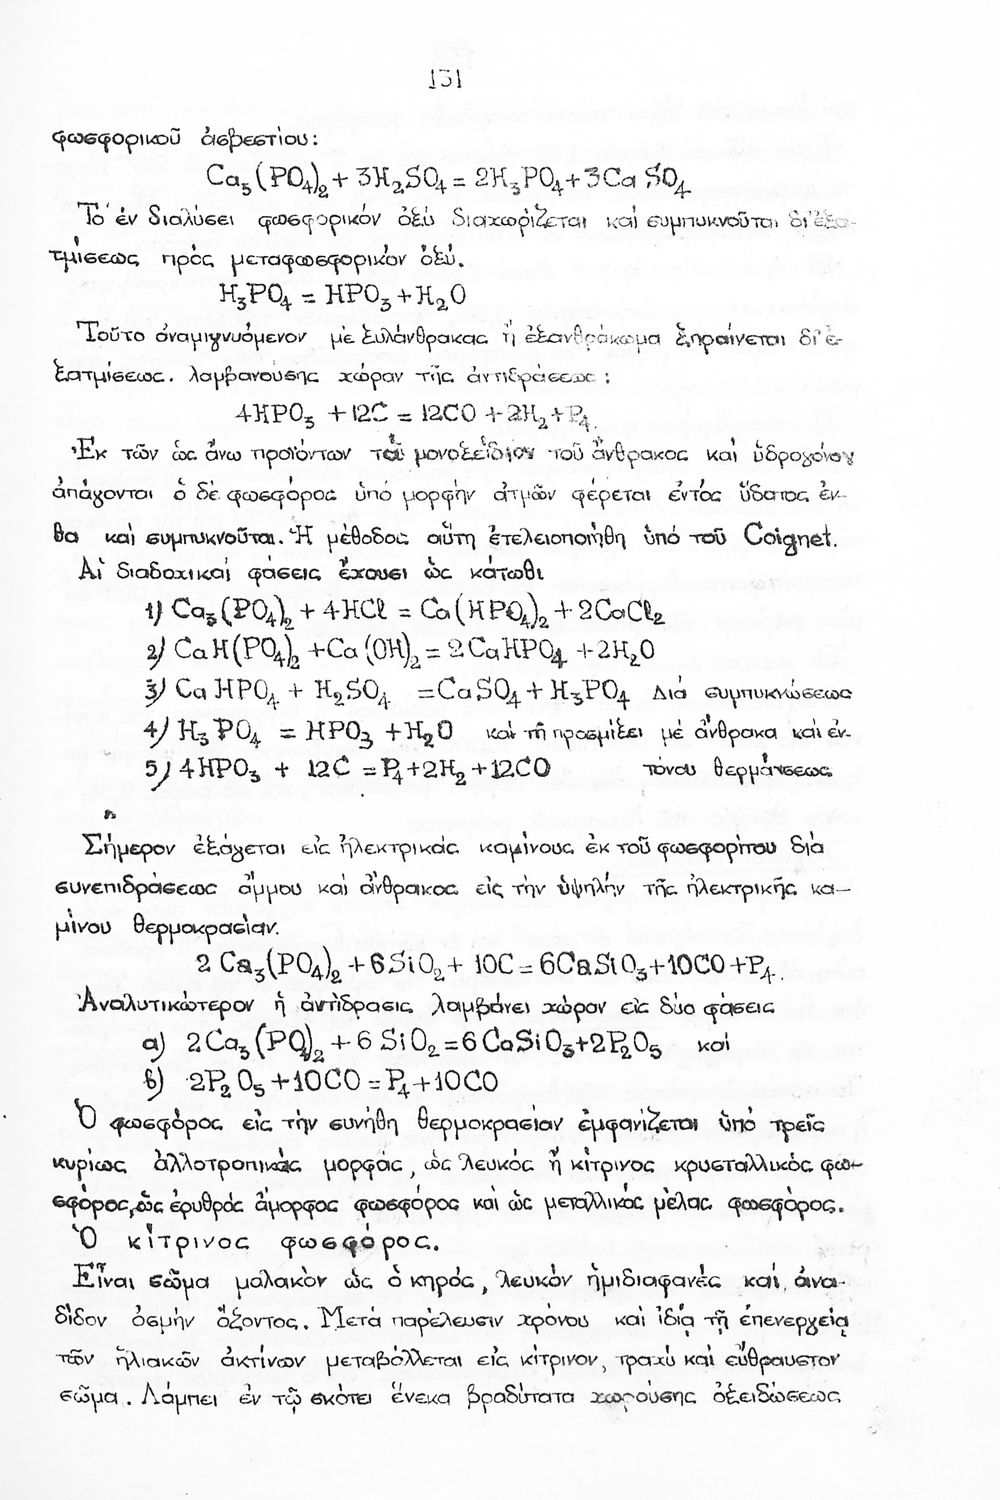 131
φωσφορικοῦ ἀσβεστίου:
Ca₃(PO₄)₂ + 3H₂SO₄ = 2H₃PO₄ + 3CaSO₄
Τό ἐν διαλύσει φωσφορικόν ὀξύ διαχωρίζεται καί συμπυκνοῦται δι'ἐξα-
τμίσεως πρός μεταφωσφορικόν ὀξύ.
H₃PO₄ = HPO₃ + H₂O
Τοῦτο ἀναμιγνυόμενον μέ ξυλάνθρακας ἤ ἐξανθράκωμα ξηραίνεται δι'ἐ-
ξατμίσεως. λαμβανούσης χώραν τῆς ἀντιδράσεως:
4HPO₃ + 12C = 12CO + 2H₂ + P₄.
Ἐκ τῶν ὡς ἄνω προϊόντων τοῦ μονοξειδίου τοῦ ἄνθρακος καί ὑδρογόνου
ἀπάγονται ὁ δέ φωσφόρος ὑπό μορφήν ἀτμῶν φέρεται ἐντός ὕδατος ἐν-
θα καί συμπυκνοῦται. Ἡ μέθοδος αὕτη ἐτελειοποιήθη ὑπό τοῦ Coignet.
Αἱ διαδοχικαί φάσεις ἔχουσι ὡς κάτωθι
1) Ca₃(PO₄)₂ + 4HCl = Ca(HPO₄)₂ + 2CaCl₂
2) CaH(PO₄)₂ + Ca(OH)₂ = 2CaHPO₄ + 2H₂O
3) CaHPO₄ + H₂SO₄ = CaSO₄ + H₃PO₄ Διά συμπυκνώσεως
4) H₃PO₄ = HPO₃ + H₂O καί τῇ προσμίξει μέ ἄνθρακα καί ἐν-
5) 4HPO₃ + 12C = P₄ + 2H₂ + 12CO τόνου θερμάνσεως
Σήμερον ἐξάγεται εἰς ἠλεκτρικάς καμίνους ἐκ τοῦ φωσφορίτου διά
συνεπιδράσεως ἄμμου καί ἄνθρακος εἰς τήν ὑψηλήν τῆς ἠλεκτρικῆς κα-
μίνου θερμοκρασίαν.
2 Ca₃(PO₄)₂ + 6SiO₂ + 10C = 6CaSiO₃ + 10CO + P₄.
Ἀναλυτικώτερον ἡ ἀντίδρασις λαμβάνει χώραν εἰς δύο φάσεις
α) 2Ca₃(PO₄)₂ + 6 SiO₂ = 6CaSiO₃ + 2P₂O₅ καί
β) 2P₂O₅ + 10CO = P₄ + 10CO
Ὁ φωσφόρος εἰς τήν συνήθη θερμοκρασίαν ἐμφανίζεται ὑπό τρεῖς
κυρίως ἀλλοτροπικάς μορφάς, ὡς λευκός ἤ κίτρινος κρυσταλλικός φω-
σφόρος, ὡς ἐρυθρός ἄμορφος φωσφόρος καί ὡς μεταλλικός μέλας φωσφόρος.
Ὁ κίτρινος φωσφόρος.
Εἶναι σῶμα μαλακόν ὡς ὁ κηρός, λευκόν ἡμιδιαφανές καί ἀνα-
δίδον ὀσμήν ὄζοντος. Μετά παρέλευσιν χρόνου καί ἰδίᾳ τῇ ἐπενεργείᾳ
τῶν ἡλιακῶν ἀκτίνων μεταβάλλεται εἰς κίτρινον, τραχύ καί εὔθραυστον
σῶμα. Λάμπει ἐν τῷ σκότει ἕνεκα βραδύτατα χωρούσης ὀξειδώσεως